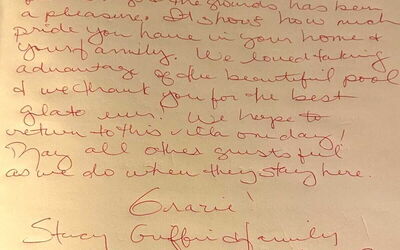 the grounds has been
a pleasure. It shows how much
pride you have in your home &
your family. We loved taking
advantage of the beautiful pool
& we thank you for the best
gelato ever. We hope to
return to this villa one day!
May all other guests feel
as we do when they stay here.
Grazie!
Stacy Griffin & family